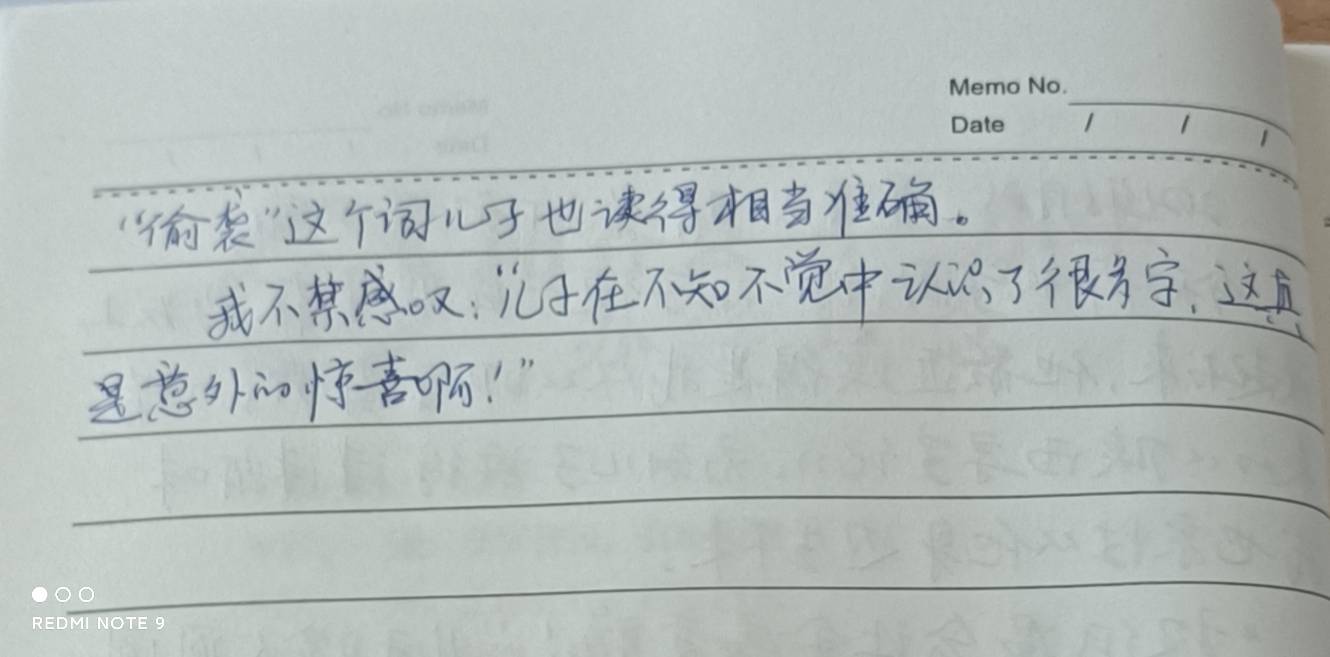 Memo No.
Date / / /
“偷袭”这个词儿子也读得相当准确。
我不禁感叹：“儿子在不知不觉中认识了很多字，这真
是意外的惊喜啊！”
REDMI NOTE 9